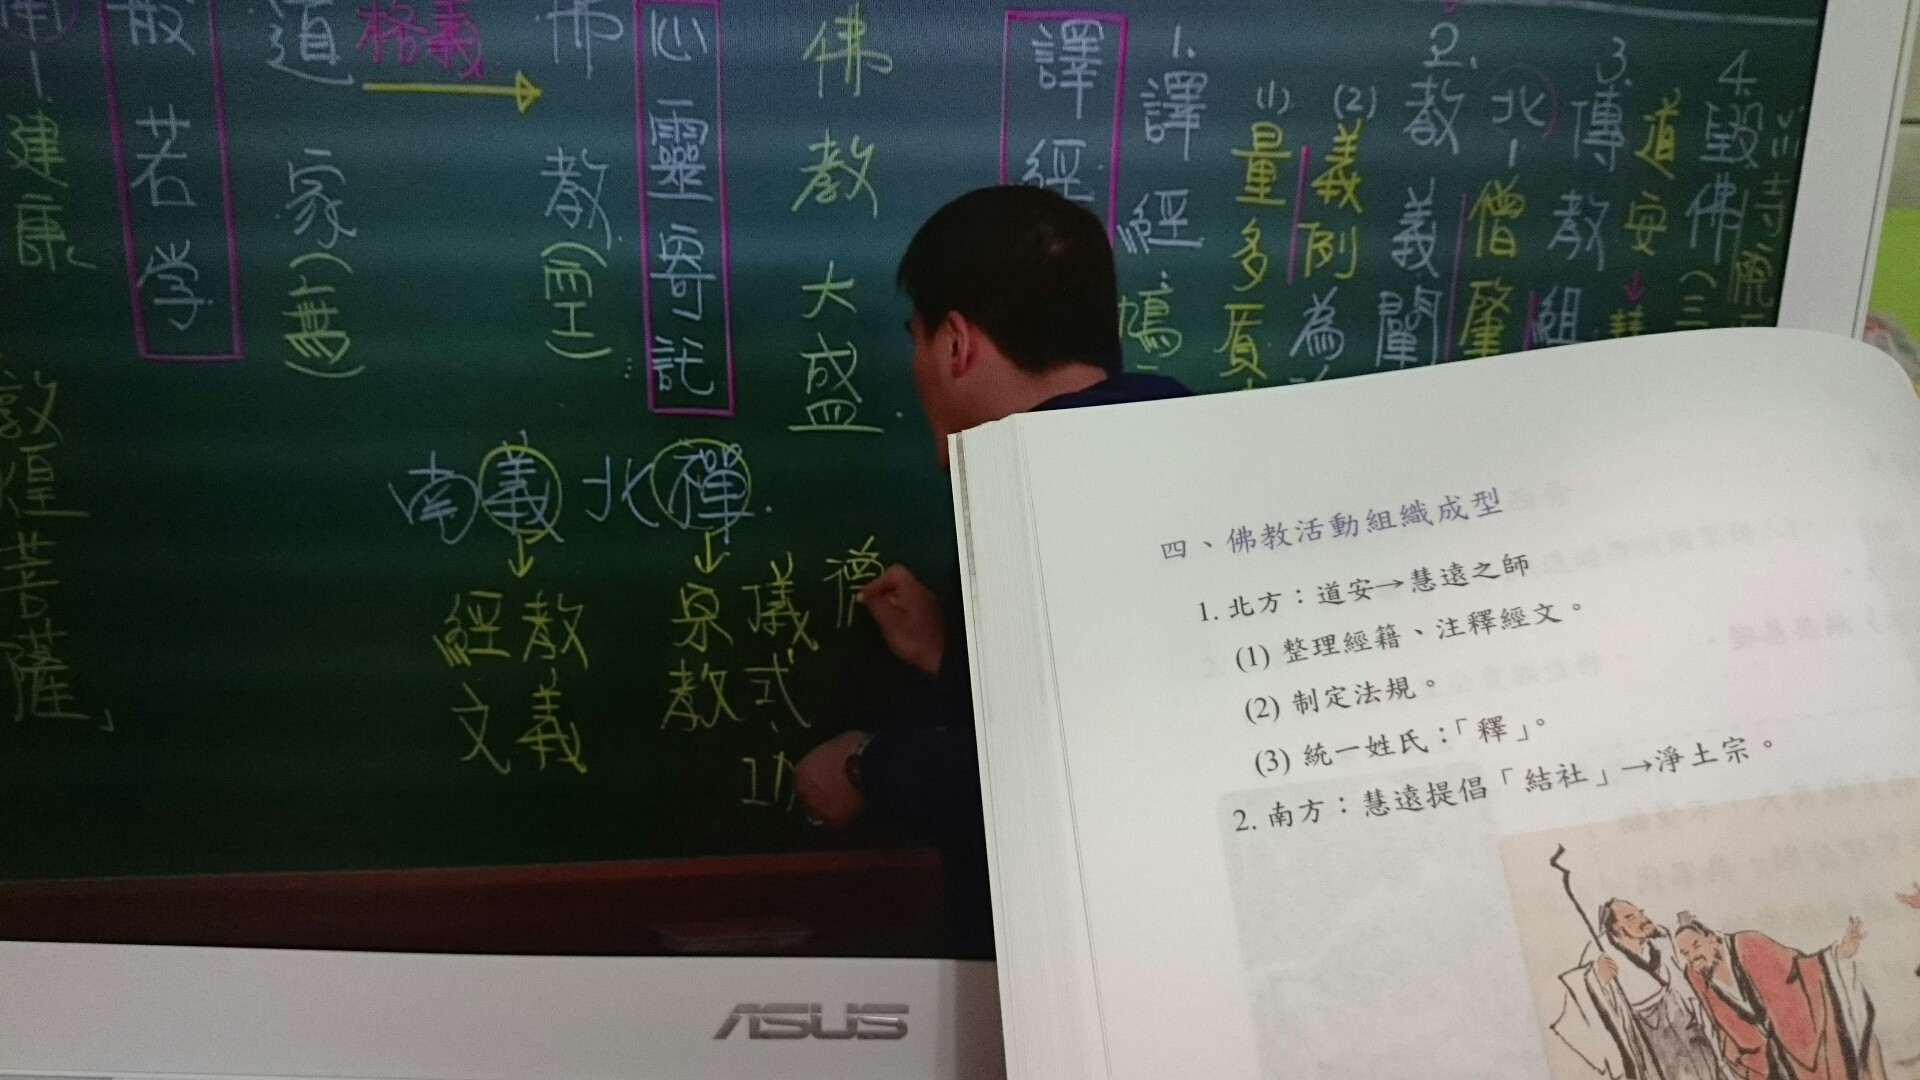 4.
毀佛(三
3.
傳教組
道安→慧
2.
教義闡
北-僧肇
1.
譯經:鳩
(1)
量多質
(2)
義例為
譯經
佛教大盛
心靈寄託
佛教(空)
格義
道家(無)
般若学
南-建康
敦煌菩薩」
南義北禪.
經文
教義
宗教
儀式、功
禮
ASUS
四、佛教活動組織成型
1. 北方：道安→慧遠之師
(1) 整理經籍、注釋經文。
(2) 制定法規。
(3) 統一姓氏：「釋」。
2. 南方：慧遠提倡「結社」→淨土宗。